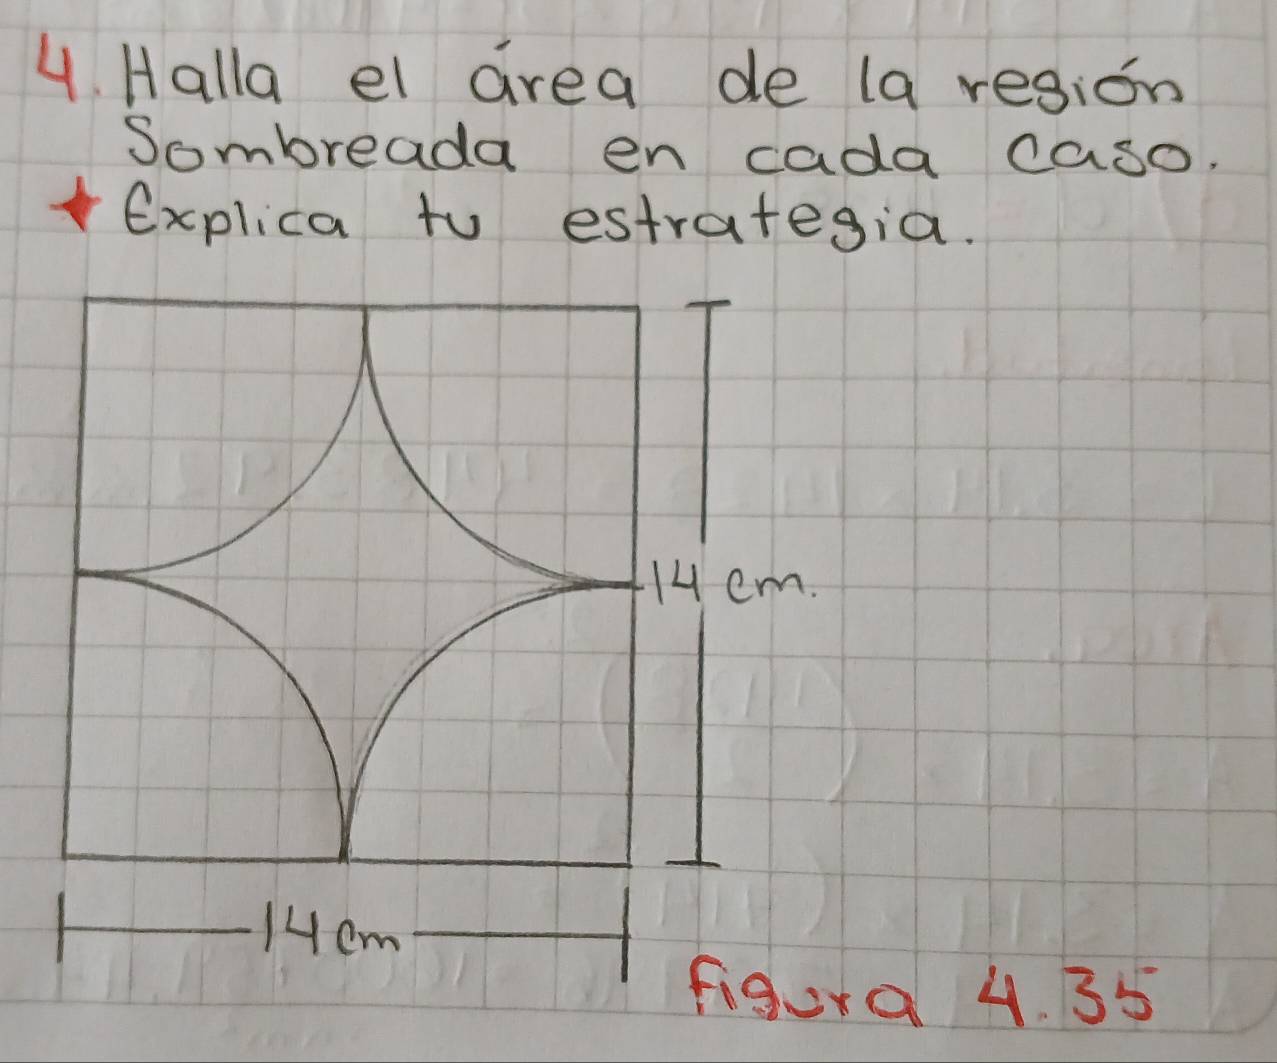 4. Halla el área de la región
Sombreada en cada caso.
Explica tu estrategia.
14 cm.
14 cm
figura 4.35